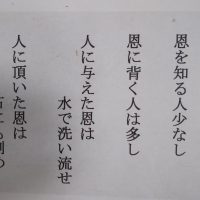 恩を知る人少なし
恩に背く人は多し
人に与えた恩は
水で洗い流せ
人に頂いた恩は